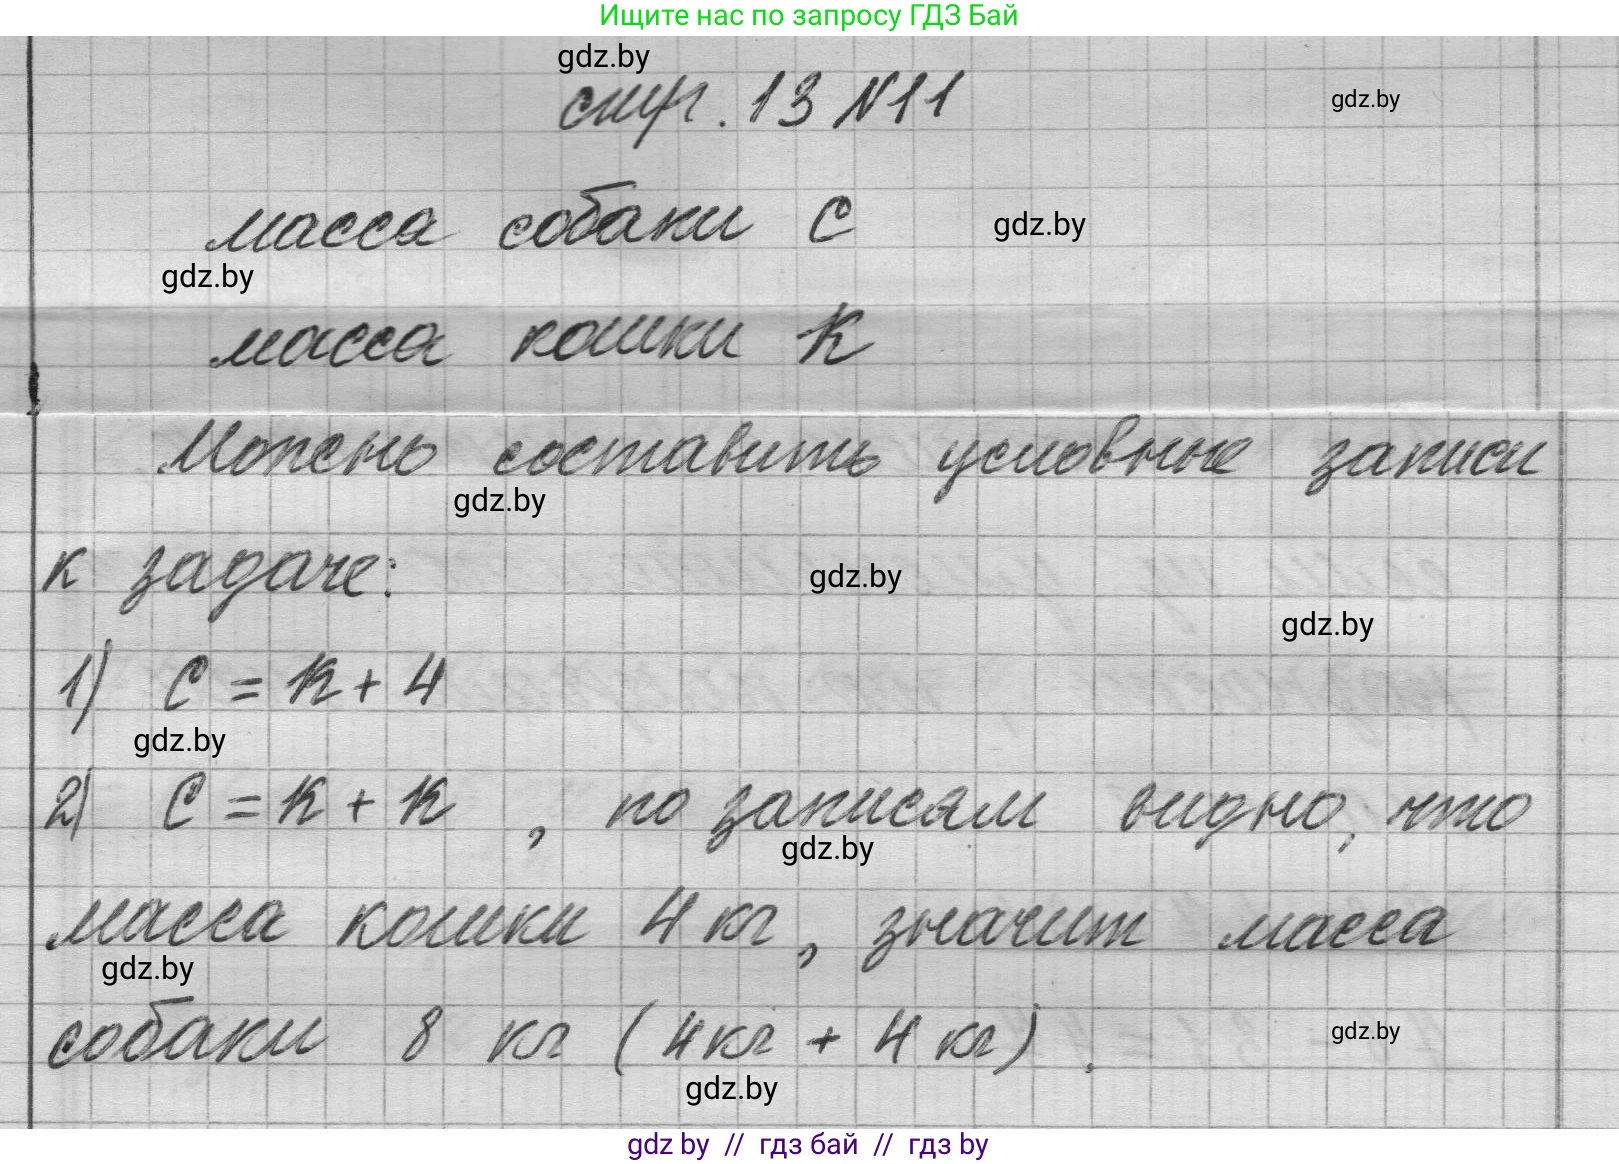 Ищите нас по запросу ГДЗ Бай
gdz.by
стр. 13 №11
gdz.by
масса собаки С
gdz.by
gdz.by
масса кошки К
Можно составить условные записи
gdz.by
к задаче:
gdz.by
gdz.by
1) С = К + 4
gdz.by
2) С = К + К , по записям видно, что
gdz.by
масса кошки 4 кг, значит масса
gdz.by
собаки 8 кг (4 кг + 4 кг) .
gdz.by
gdz.by
gdz by // гдз бай // гдз by